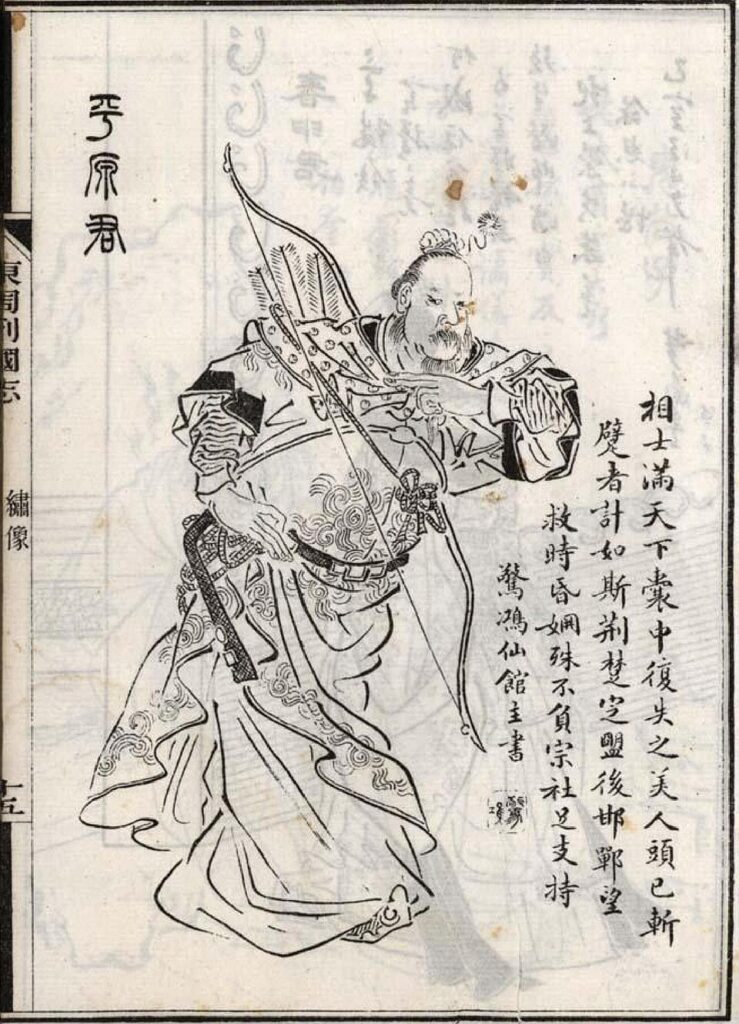 相士滿天下囊中復失之美人頭已斬
躄者計如斯荆楚定盟後邯鄲望
救時昏婣殊不負宗社足支持
驚鴻仙館主書
平原君
東周列國志
繡像
十五